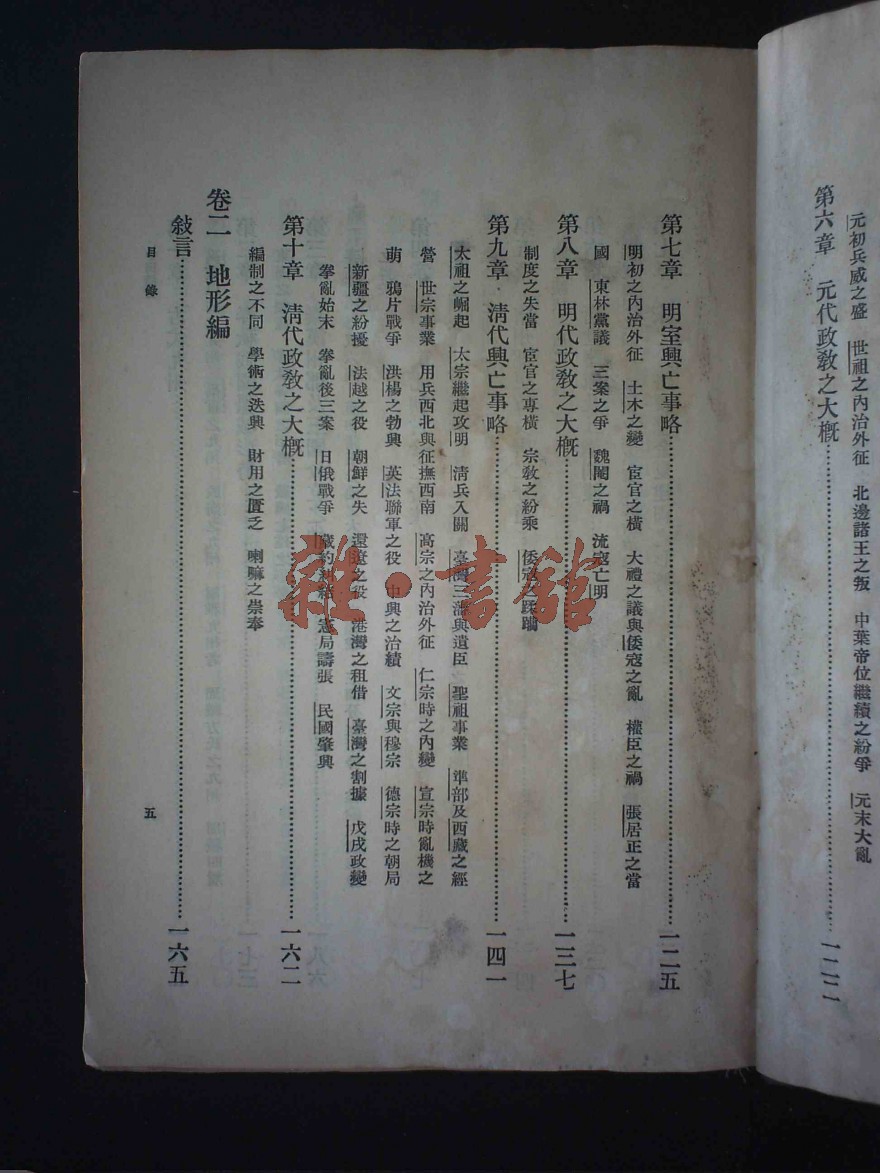 元初兵威之盛　世祖之內治外征　北邊諸王之叛　中葉帝位繼續之紛爭　元末大亂
第六章　元代政教之大槪……一二二
第七章　明室興亡事略……一二五
明初之內治外征　土木之變　宦官之橫　大禮之議與倭寇之亂　權臣之禍　張居正之當
國　東林黨議　三案之爭　魏閹之禍　流寇亡明
第八章　明代政教之大槪……一三七
制度之失當　宦官之專橫　宗教之紛乘　倭寇之蹂躪
第九章　清代興亡事略……一四一
太祖之崛起　太宗繼起攻明　清兵入關　臺灣三藩與遺臣　聖祖事業　準部及西藏之經
營　世宗事業　用兵西北與征撫西南　高宗之內治外征　仁宗時之內變　宣宗時亂機之
萌　鴉片戰爭　洪楊之勃興　英法聯軍之役　中興之治績　文宗與穆宗　德宗時之朝局
新疆之紛擾　法越之役　朝鮮之失　還遼之役　港灣之租借　臺灣之割據　戊戌政變
拳亂始末　拳亂後三案　日俄戰爭　藏約糾結　憲局譸張　民國肇興
第十章　清代政教之大槪……一六二
編制之不同　學術之迭興　財用之匱乏　喇嘛之崇奉
卷二　地形編
敍言……一六五
目錄
五
雜·書館